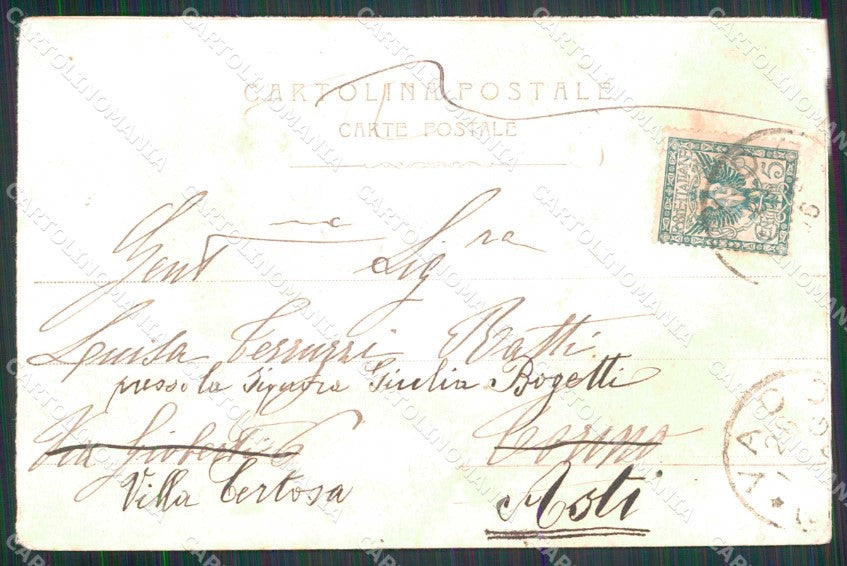 CARTOLINA POSTALE
CARTE POSTALE
Gent.ma Sig.ra
Luisa Terruzzi Ratti
presso la Signora Giulia Bogetti
Via Gioberti
Torino
Villa Certosa
Asti
5
CARTOLINOMANIA